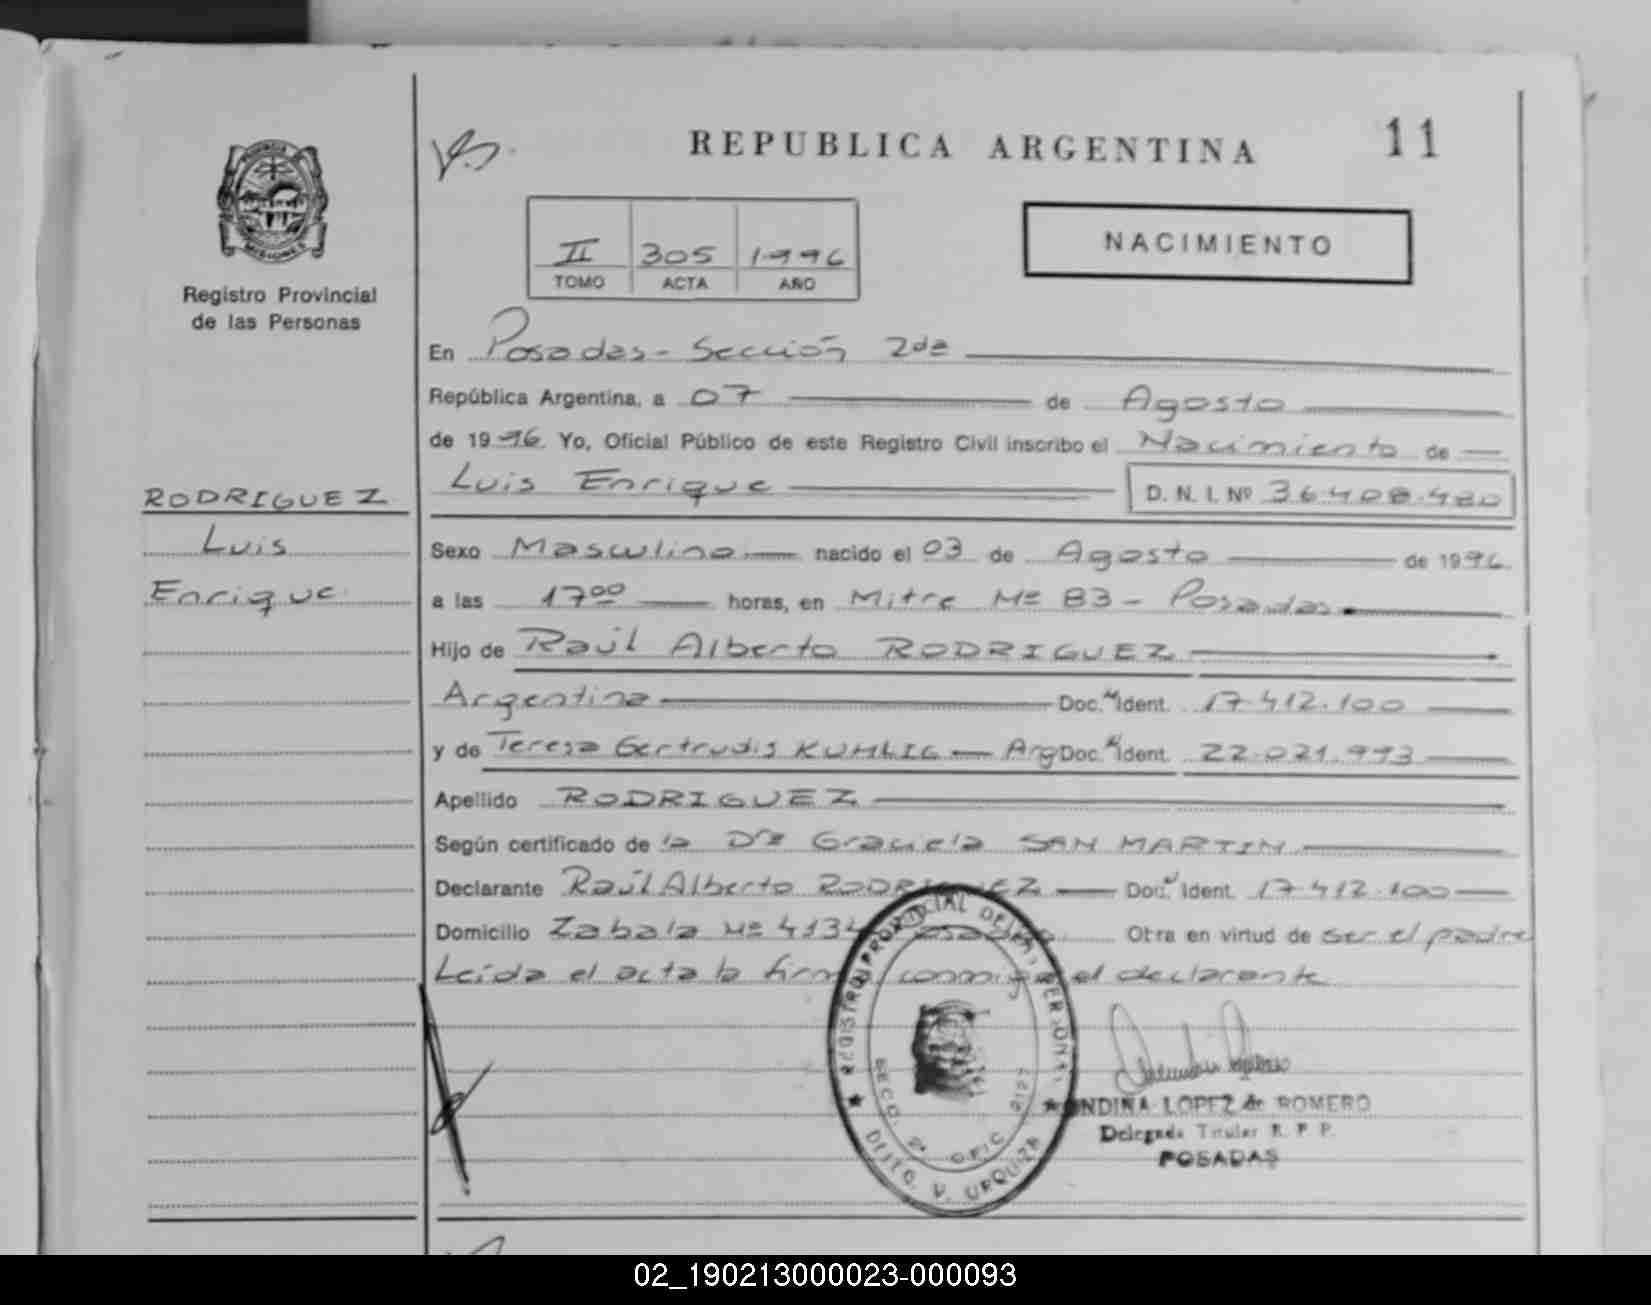 REPUBLICA ARGENTINA
11
II 305 1996
TOMO ACTA AÑO
NACIMIENTO
MISIONES
Registro Provincial
de las Personas
En Posadas - Sección 2da
República Argentina, a 07 de Agosto
de 1996 Yo, Oficial Público de este Registro Civil inscribo el Nacimiento de
Luis Enrique D. N. I. Nº 36.408.480
RODRIGUEZ
Luis
Enrique
Sexo Masculino nacido el 03 de Agosto de 1996
a las 17 00 horas, en Mitre Nº 83 - Posadas
Hijo de Raúl Alberto RODRIGUEZ
Argentina Doc. Ident. 17.412.100
y de Teresa Gertrudis KUHLIG Arg Doc. Ident. 22.021.993
Apellido RODRIGUEZ
Según certificado de la Dra Graciela SAN MARTIN
Declarante Raúl Alberto RODRIGUEZ Doc. Ident. 17.412.100
Domicilio Zabala Nº 4134 Posadas Otra en virtud de ser el padre
Leída el acta la firma conmigo el declarante
REGISTRO PROVINCIAL DE LAS PERSONAS
SECC. 2ª OFIC.
DPTO. V. URQUIZA
ONDINA LOPEZ de ROMERO
Delegada Titular R. P. P.
POSADAS
02_190213000023-000093